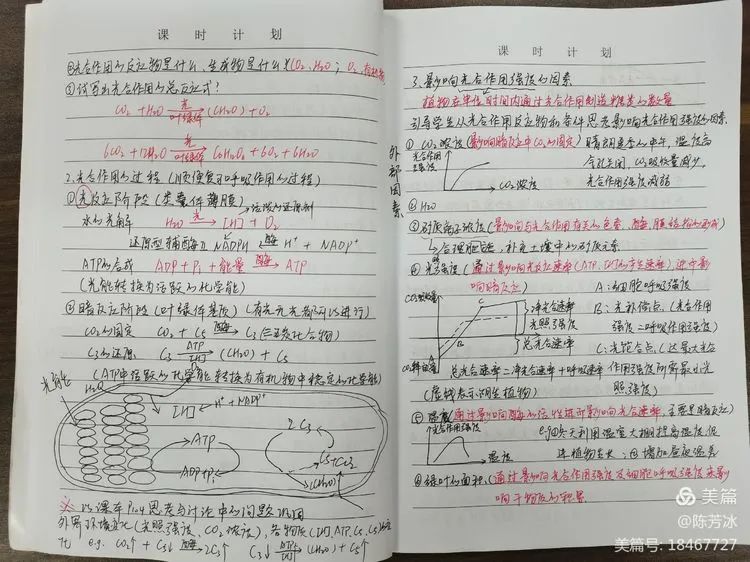 课时计划
④光合作用的反应物是什么、生成物是什么?(CO₂、H₂O; O₂、有机物)
⑤试写出光合作用的总反应式?
CO₂ + H₂O —光/叶绿体→ (CH₂O) + O₂
6CO₂ + 12H₂O —光/叶绿体→ C₆H₁₂O₆ + 6O₂ + 6H₂O
2.光合作用的过程(顺便复习呼吸作用的过程)
①光反应阶段(类囊体薄膜)
水的光解 H₂O —光→ [H] + O₂
还原型辅酶Ⅱ NADPH —酶→ H⁺ + NADP⁺
ATP的合成 ADP + Pi + 能量 —酶→ ATP
(光能转换为活跃的化学能)
②暗反应阶段(叶绿体基质)(有光无光都可以进行)
CO₂的固定 CO₂ + C₅ —酶→ C₃(三碳化合物)
C₃的还原 C₃ —ATP/[H]→ (CH₂O) + C₅
(ATP中活跃的化学能转换为有机物中稳定的化学能)
光能
H₂O
[H]
H⁺ + NADP⁺
ATP
ADP+Pi
2C₃
C₅
CO₂
(CH₂O)
※ 课本P104思考与讨论中的问题
外界环境变化(光照强度、CO₂浓度),各物质([H]、ATP、C₃、C₅)
化 e.g. CO₂↑ + C₅↓ —酶→ 2C₃↑ C₃↓ —ATP/[H]→ (CH₂O) + C₅↑
课时计划
3.影响光合作用强度的因素
植物在单位时间内通过光合作用制造糖类的数量
引导学生从光合作用反应物和条件思考影响光合作用强度的因素
外部因素
①CO₂浓度(影响暗反应中CO₂的固定) 晴朗夏天的中午,温度高
气孔关闭,CO₂吸收量减少,
光合作用强度减弱
光合作用强度
CO₂浓度
②H₂O
③矿质离子浓度(影响与光合作用有关的色素、酶、膜结构的形成)
合理施肥,补充土壤中的矿质元素
④光照强度(通过影响光反应速率(ATP、[H]的产生速率),进而影
响暗反应)
A:细胞呼吸强度
B:光补偿点(光合作用
强度=呼吸作用强度)
C:光饱合点(达最大光合
作用强度所需最小光
照强度)
CO₂吸收量
净光合速率
光照强度
总光合速率
CO₂释放量
总光合速率=净光合速率+呼吸速率
(虚线表示阴生植物)
⑤温度(通过影响酶的活性进而影响光合速率,主要是暗反应)
光合作用强度
温度
e.g.①冬天利用温室大棚提高温度促
进植物生长;②增加昼夜温差
⑥绿叶的面积(通过影响光合作用强度及细胞呼吸强度来影
响干物质的积累)
美篇
@陈芳冰
美篇号: 18467727